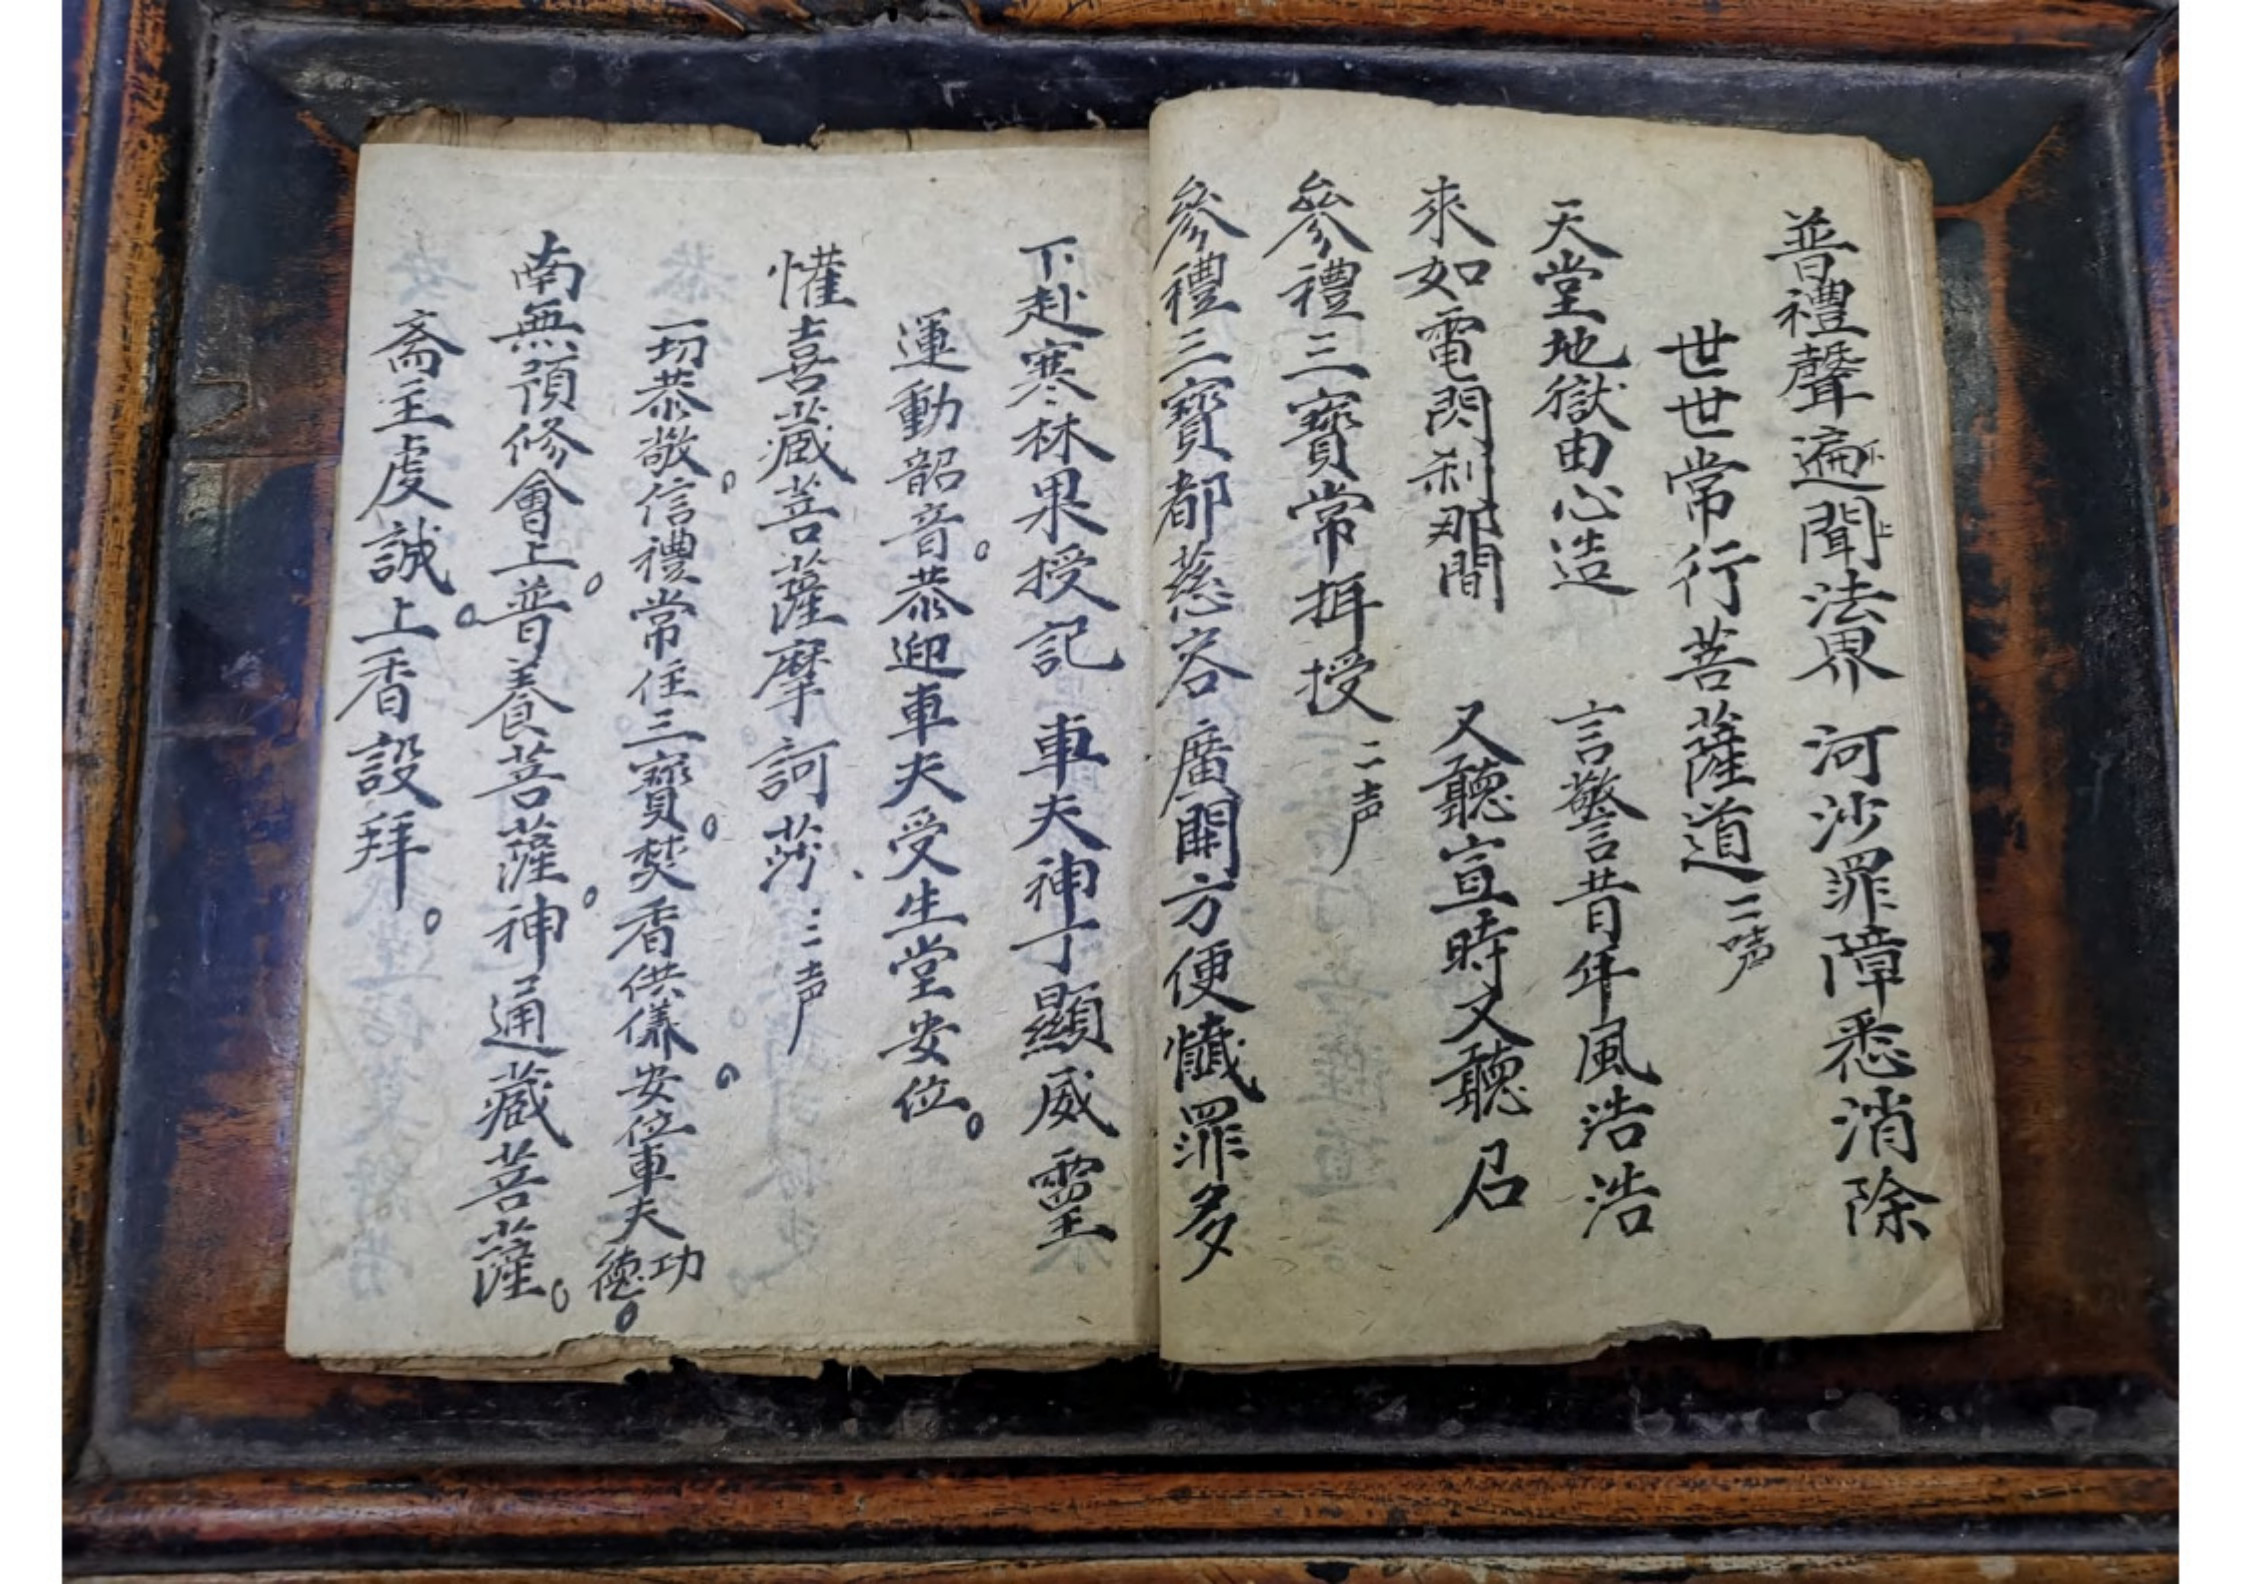 普禮聲遍聞法界 河沙罪障悉消除
世世常行菩薩道 二声
天堂地獄由心造 言警昔年風浩浩
來如電閃刹那間 又聽宣時又聽召
參禮三寶常授 二声
參禮三寶都慈容 廣開方便懺罪多
下赴寒林果授記 車夫神丁顯威靈
運動韶音。恭迎車夫受生堂安位。
懽喜藏菩薩摩訶莎 三声
一切恭敬。信禮常住三寶。焚香供儀。安位車夫功德。
南無預修會上。普養菩薩。神通藏菩薩。
斋主虔誠。上香設拜。